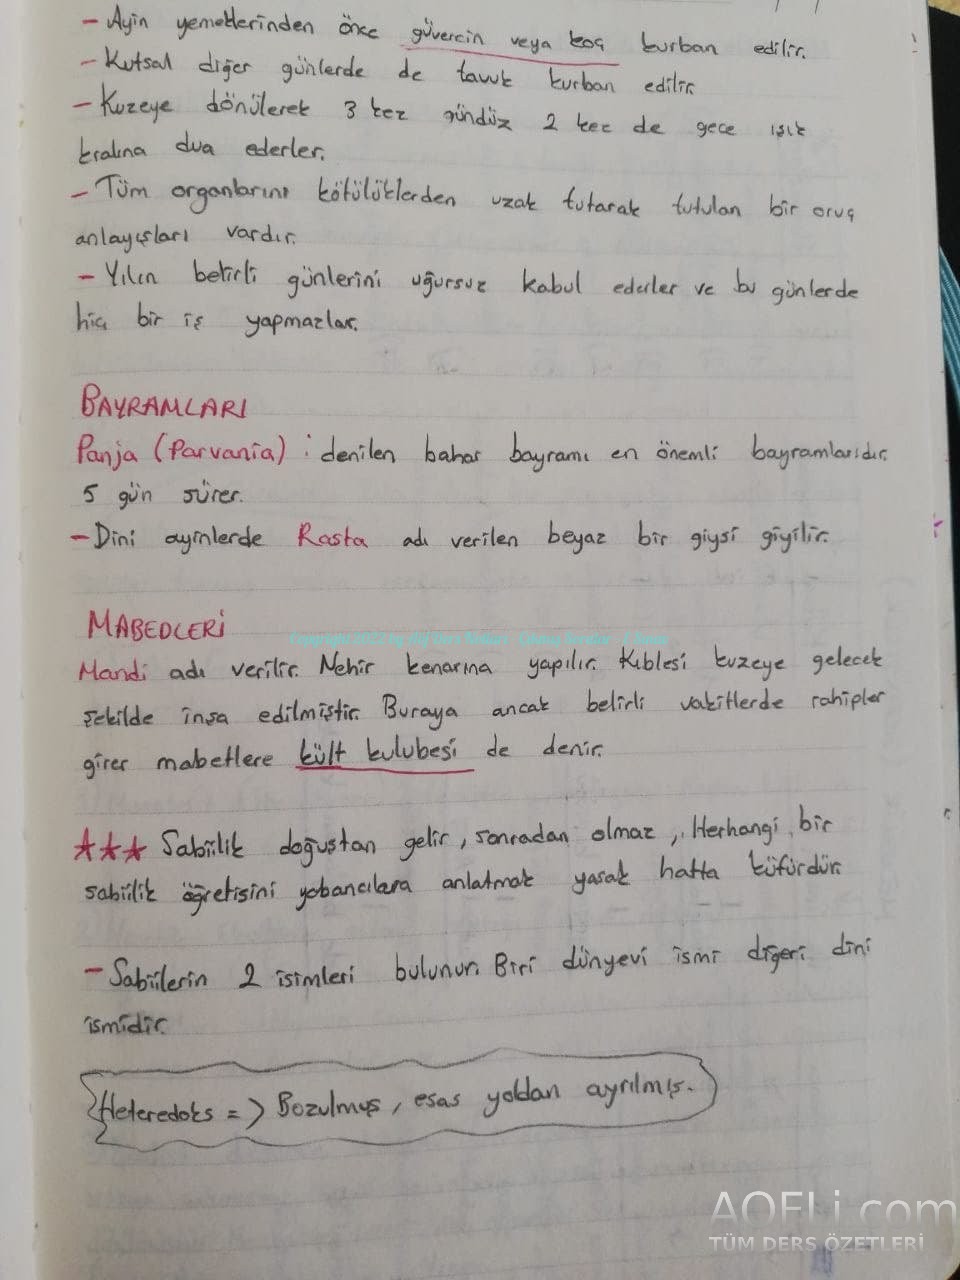 - Ayin yemeklerinden önce güvercin veya koç kurban edilir.
- Kutsal diğer günlerde de tavuk kurban edilir
- Kuzeye dönülerek 3 kez gündüz 2 kez de gece ışık
kralına dua ederler.
- Tüm organlarını kötülüklerden uzak tutarak tutulan bir oruç
anlayışları vardır.
- Yılın belirli günlerini uğursuz kabul ederler ve bu günlerde
hiç bir iş yapmazlar.
BAYRAMLARI
Panja (Parvania) : denilen bahar bayramı en önemli bayramlarıdır.
5 gün sürer.
- Dini ayinlerde Rasta adı verilen beyaz bir giysi giyilir.
MABEDLERİ
Mandi adı verilir. Nehir kenarına yapılır. Kıblesi kuzeye gelecek
şekilde inşa edilmiştir. Buraya ancak belirli vakitlerde rahipler
girer mabetlere kült kulubesi de denir.
★★★ Sabiilik doğuştan gelir, sonradan olmaz, Herhangi bir
sabiilik öğretisini yabancılara anlatmak yasak hatta küfürdür.
- Sabiilerin 2 isimleri bulunur. Biri dünyevi ismi diğeri dini
ismidir.
Heteredoks => Bozulmuş, esas yoldan ayrılmış.
AOFLi.com
TÜM DERS ÖZETLERİ